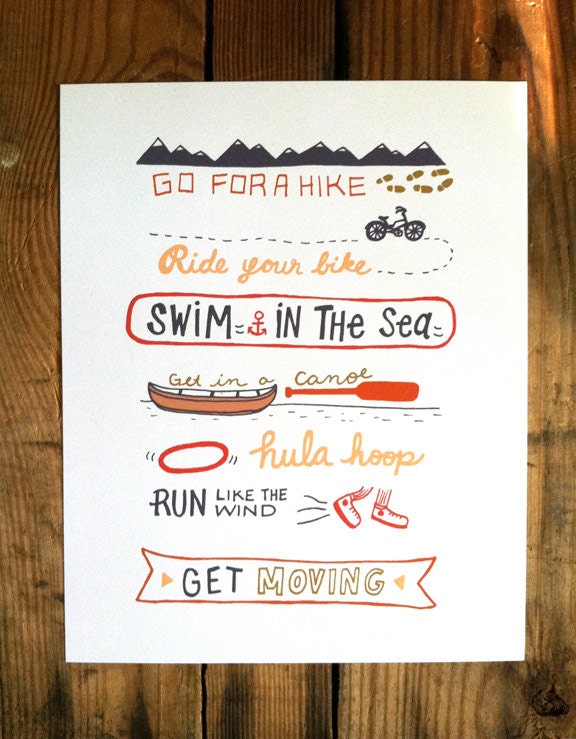 GO FOR A HIKE
Ride your bike
SWiM iN THe Sea
Get in a canoe
hula hoop
RUN LIKE THE WIND
GET MOVING